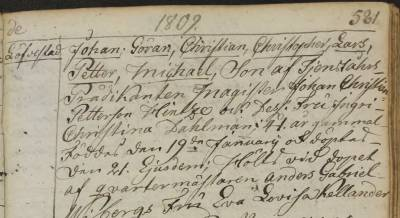 de
1809
581
Löfvestad
Johan, Göran, Christian, Christopher, Lars,
Petter, Michael, Son af Tjenstförs
Prædikanten Magister Johan Christian
Petterson Hintze och dess Fru Ingri-
Christina Dahlman; 41. år gammal
Föddes den 19de January och döptes
den 21. Ejusdem; Holts vid dopet
af qvartermästaren Anders Gabriel
Wibergs Fru Eva Lovisa Kellander